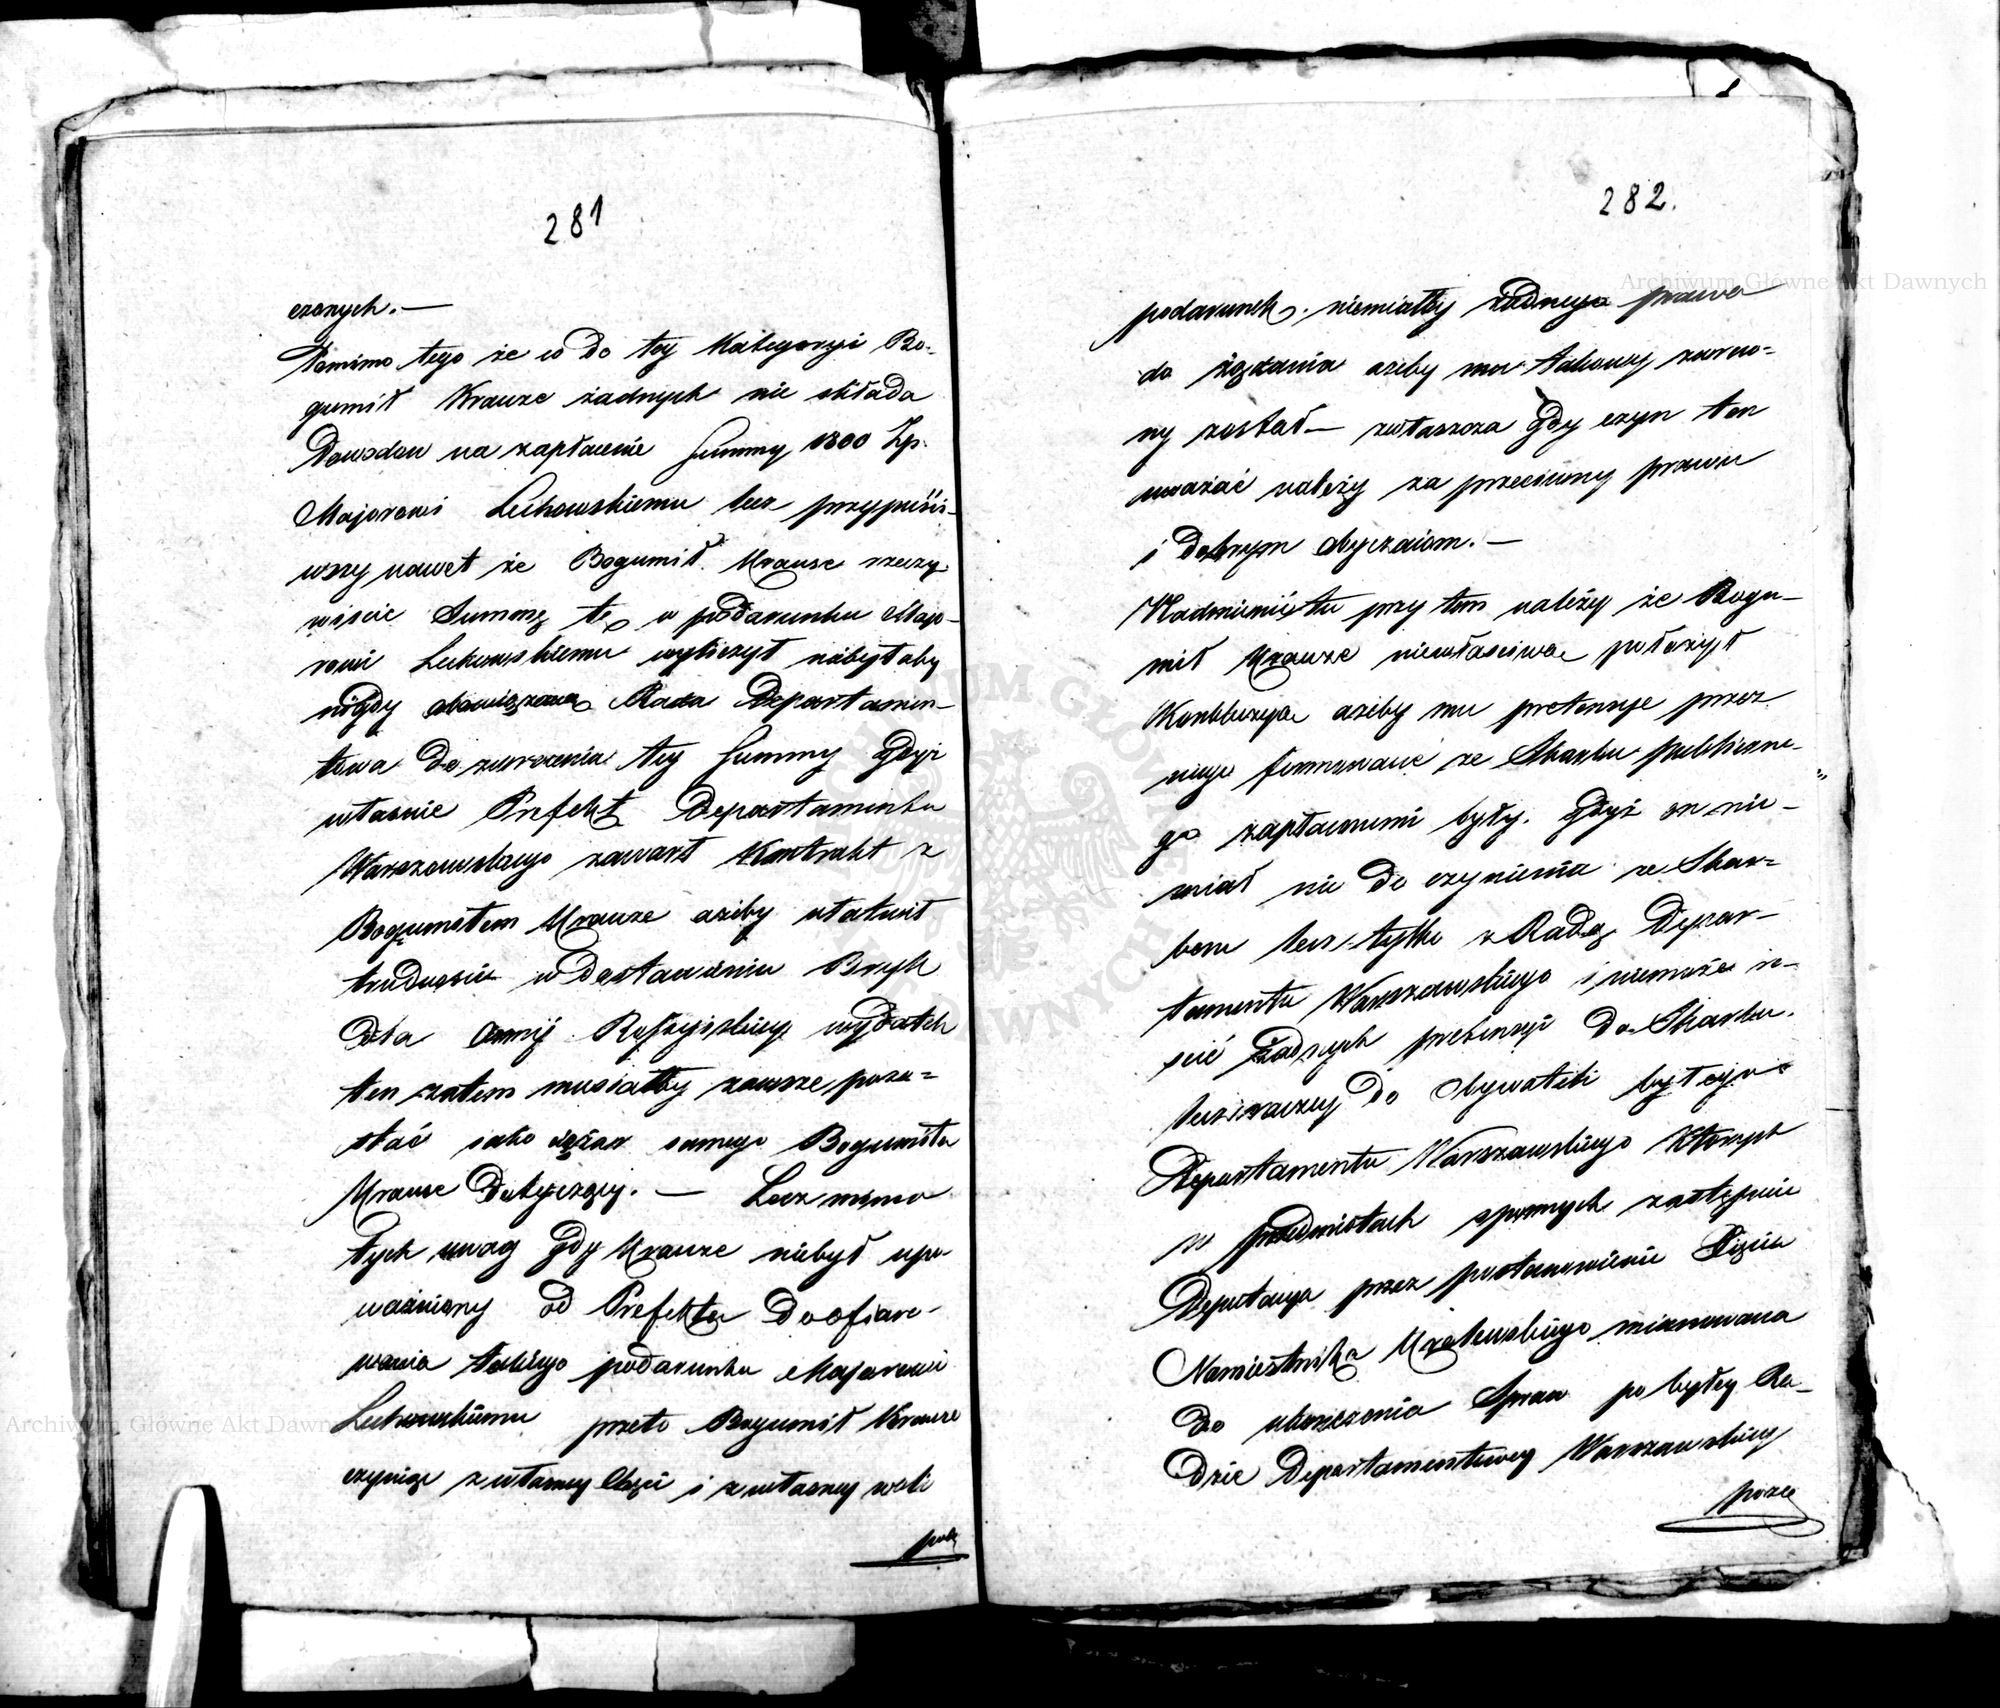 281
czonych. —
Pomimo tego że co do tey Kategoryi Bo-
gumił Krauze żadnych nie składa
Dowodow na zapłacenie Summy 1800 Zp.
Majorowi Luchowskiemu lecz przypuści-
wszy nawet że Bogumił Krause rzeczy-
wiscie Summę tę w podarunku Majo-
rowi Luchowskiemu wyliczył niebyłaby
nigdy obowiązana Rada Departamen-
towa do zwrocenia tey Summy gdyż
własnie Prefekt Departamentu
Warszawskiego zawarł Kontrakt z
Bogumiłem Krauze ażeby ułatwił
trudnosci w Dostawieniu Bryk
dla Armij Rossyiskiey wydatek
ten zatem musiałby zawsze pozo-
stać iako ciężar samego Bogumiła
Krause Dotyczący. — Lecz mimo
tych uwag gdy Krauze niebył upo-
ważniony od Prefekta Do ofiaro-
wania takiego podarunku Majorowi
Luchowskiemu przeto Bogumił Krauze
czyniąc z własney chęci i z własney woli
pod
282.
podarunek niemiałby żadnego prawa
do żądania ażeby mu takowy zwroco-
ny został — zwłaszcza gdy czyn ten
uważać należy za przeciwny prawu
i dobrym obyczaiom. —
Nadmienić tu przy tem należy że Bogu-
mił Krauze niewłasciwie położył
Konkluzya ażeby mu pretensye przez
niego formowane ze Skarbu publiczne-
go zapłaconemi były. Gdyż on nie-
miał nic do czynienia ze Skar-
bem lecz tylko z Radą Depar-
tamentu Warszawskiego i niemoże ro-
scić żadnych pretensyi do Skarbu.
lecz raczey do Obywateli byłego
Departamentu Warszawskiego ktorych
w przedmiotach spornych zastępuie
Deputacya przez postanowienie Xięcia
Namiestnika Krolewskiego mianowana
do ukonczenia Spraw po byłey Ra-
dzie Departamentowey Warszawskiey